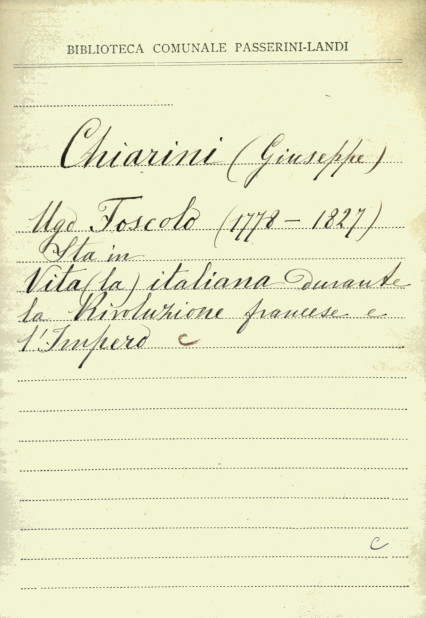 BIBLIOTECA COMUNALE PASSERINI-LANDI
Chiarini (Giuseppe)
Ugo Foscolo (1778 - 1827)
Sta in
Vita (la) italiana durante
la Rivoluzione francese e
l'Impero c
c